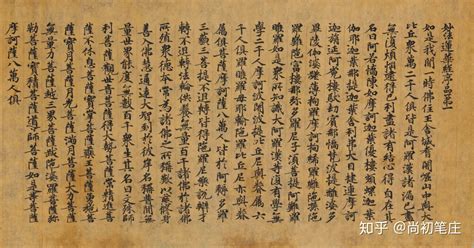 妙法蓮華經序品第一
如是我聞一時佛住王舍城耆闍崛山中與大
比丘眾萬二千人俱皆是阿羅漢諸漏已盡
無復煩惱逮得己利盡諸有結心得自在其
名曰阿若憍陳如摩訶迦葉優樓頻螺迦葉
伽耶迦葉那提迦葉舍利弗大目揵連摩訶
迦旃延阿㝹樓馱劫賓那憍梵波提離婆多
畢陵伽婆蹉薄拘羅摩訶拘絺羅難陀孫陀
羅難陀富樓那彌多羅尼子須菩提阿難羅
睺羅如是眾所知識大阿羅漢等復有學無
學二千人摩訶波闍波提比丘尼與眷屬六
千人俱羅睺羅母耶輸陀羅比丘尼亦與眷
屬俱菩薩摩訶薩八萬人皆於阿耨多羅
三藐三菩提不退轉皆得陀羅尼樂說辯才
轉不退轉法輪供養無量百千諸佛於諸佛
所殖眾德本常為諸佛之所稱歎以慈修身
善入佛慧通達大智到於彼岸名稱普聞無
量世界能度無數百千眾生其名曰文殊師
利菩薩觀世音菩薩得大勢菩薩常精進菩
薩不休息菩薩寶掌菩薩藥王菩薩勇施菩
薩寶月菩薩月光菩薩滿月菩薩大力菩薩
無量力菩薩越三界菩薩跋陀婆羅菩薩彌
勒菩薩寶積菩薩導師菩薩如是等菩薩
摩訶薩八萬人俱
知乎 @尚初笔庄